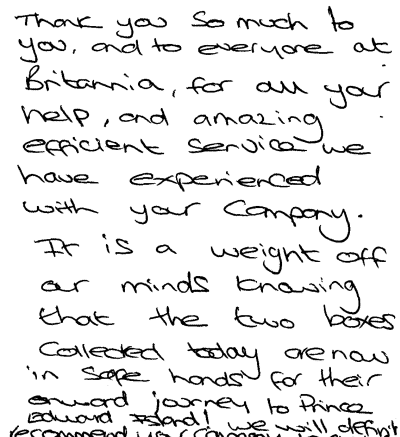 Thank you so much to
you, and to everyone at
Britannia, for all your
help, and amazing
efficient service we
have experienced
with your Company.
It is a weight off
our minds knowing
that the two boxes
Collected today are now
in safe hands for their
onward journey to Prince
Edward Island! we will definit
recommend your company